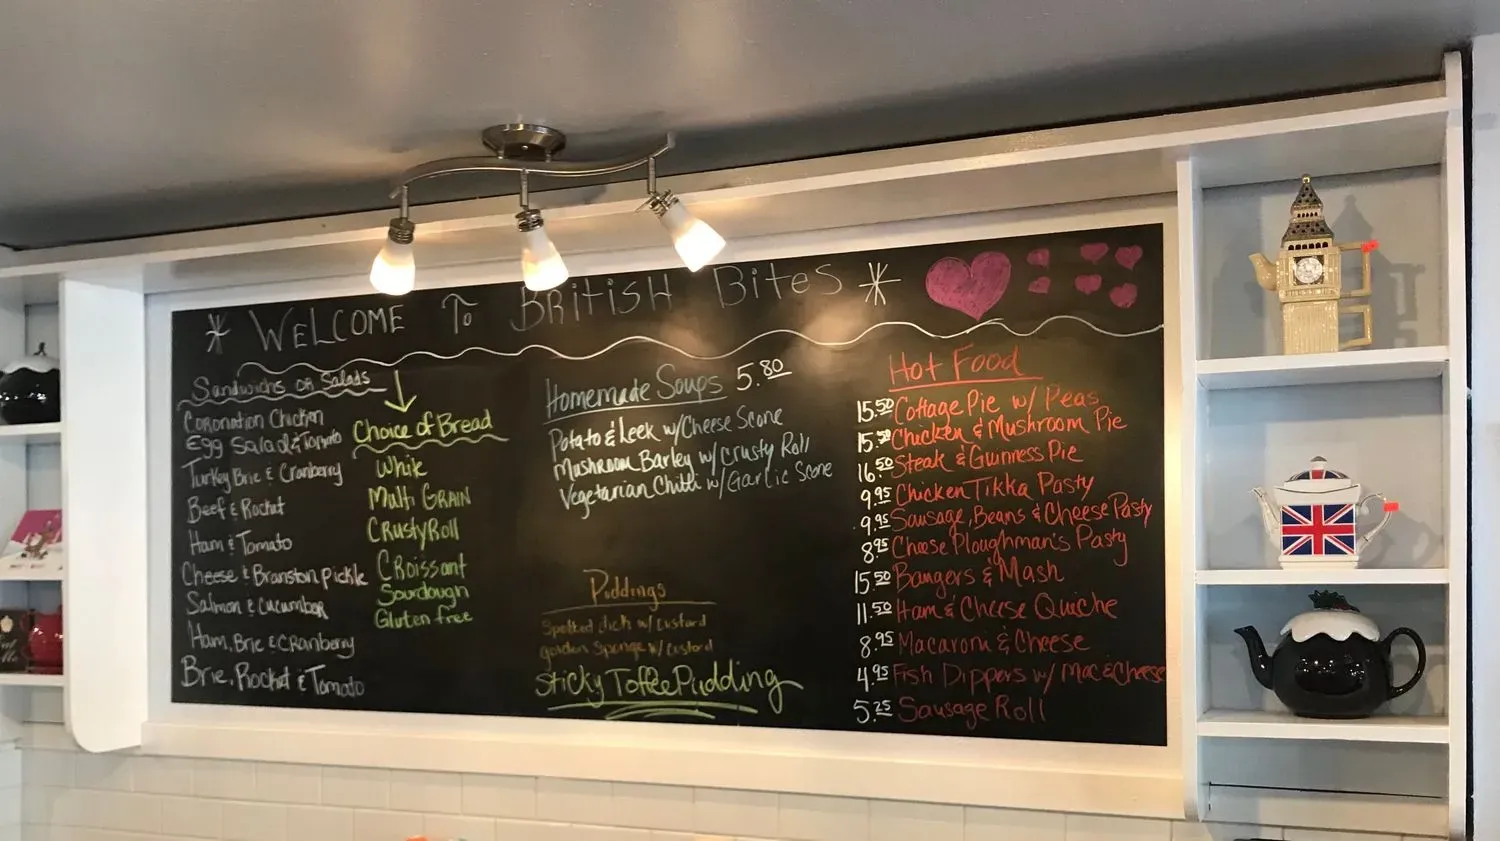 * WELCOME To BRitiSH BitEs *
Sandwichs or Salads
Coronation Chicken
Egg Salad & Tomato
Turkey Brie & Cranberry
Beef & Rocket
Ham & Tomato
Cheese & Branston pickle
Salmon & Cucumber
Ham, Brie & Cranberry
Brie, Rocket & Tomato
Choice of Bread
White
Multi GRAIN
Crusty Roll
Croissant
Sourdough
Gluten free
Homemade Soups 5.80
Potato & Leek w/ Cheese Scone
Mushroom Barley w/ crusty Roll
Vegetarian Chilli w/ Garlic Scone
Puddings
Spotted dick w/ custard
golden sponge w/ custard
Sticky Toffee Pudding
Hot Food
15.50 Cottage Pie w/ Peas
15.50 Chicken & Mushroom Pie
16.50 Steak & Guinness Pie
9.95 Chicken Tikka Pasty
9.95 Sausage, Beans & Cheese Pasty
8.95 Cheese Ploughman's Pasty
15.50 Bangers & Mash
11.50 Ham & Cheese Quiche
8.95 Macaroni & Cheese
4.95 Fish Dippers w/ Mac & Cheese
5.25 Sausage Roll